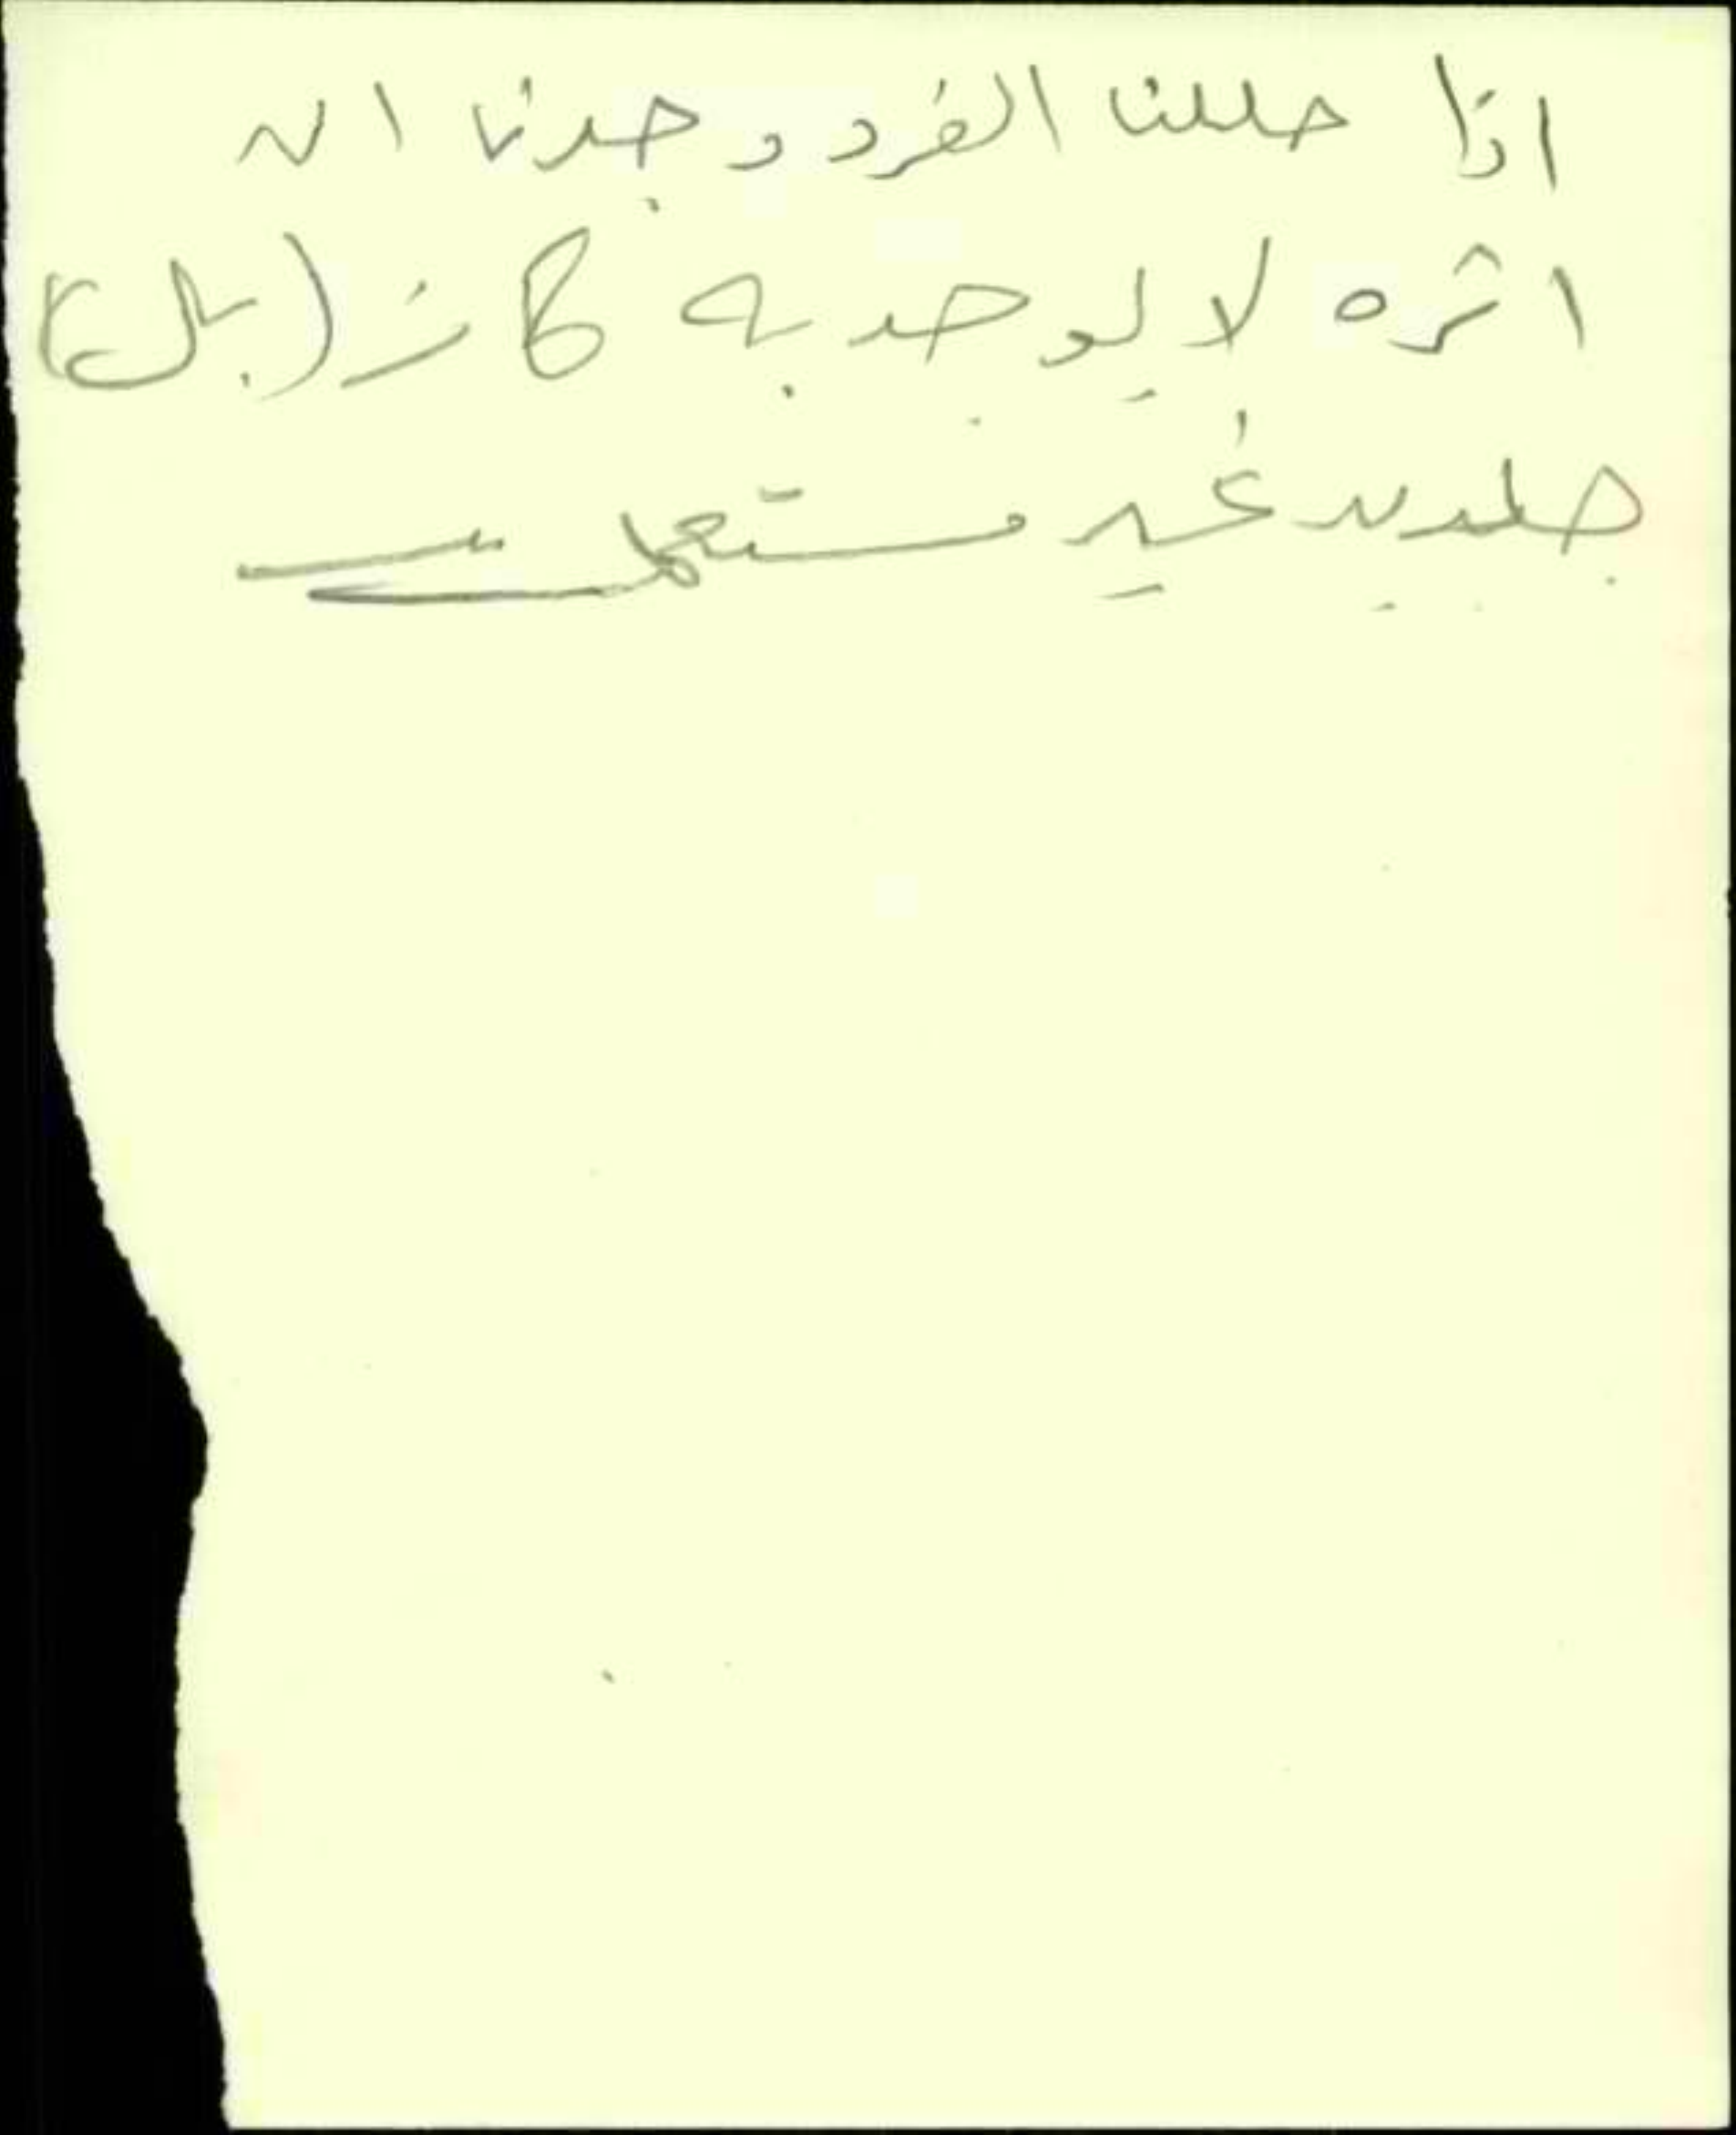 اذا حللنا الفرد وجدنا ان
اثره لا يوجد به كاز (بل)
جديد غير مستعملة